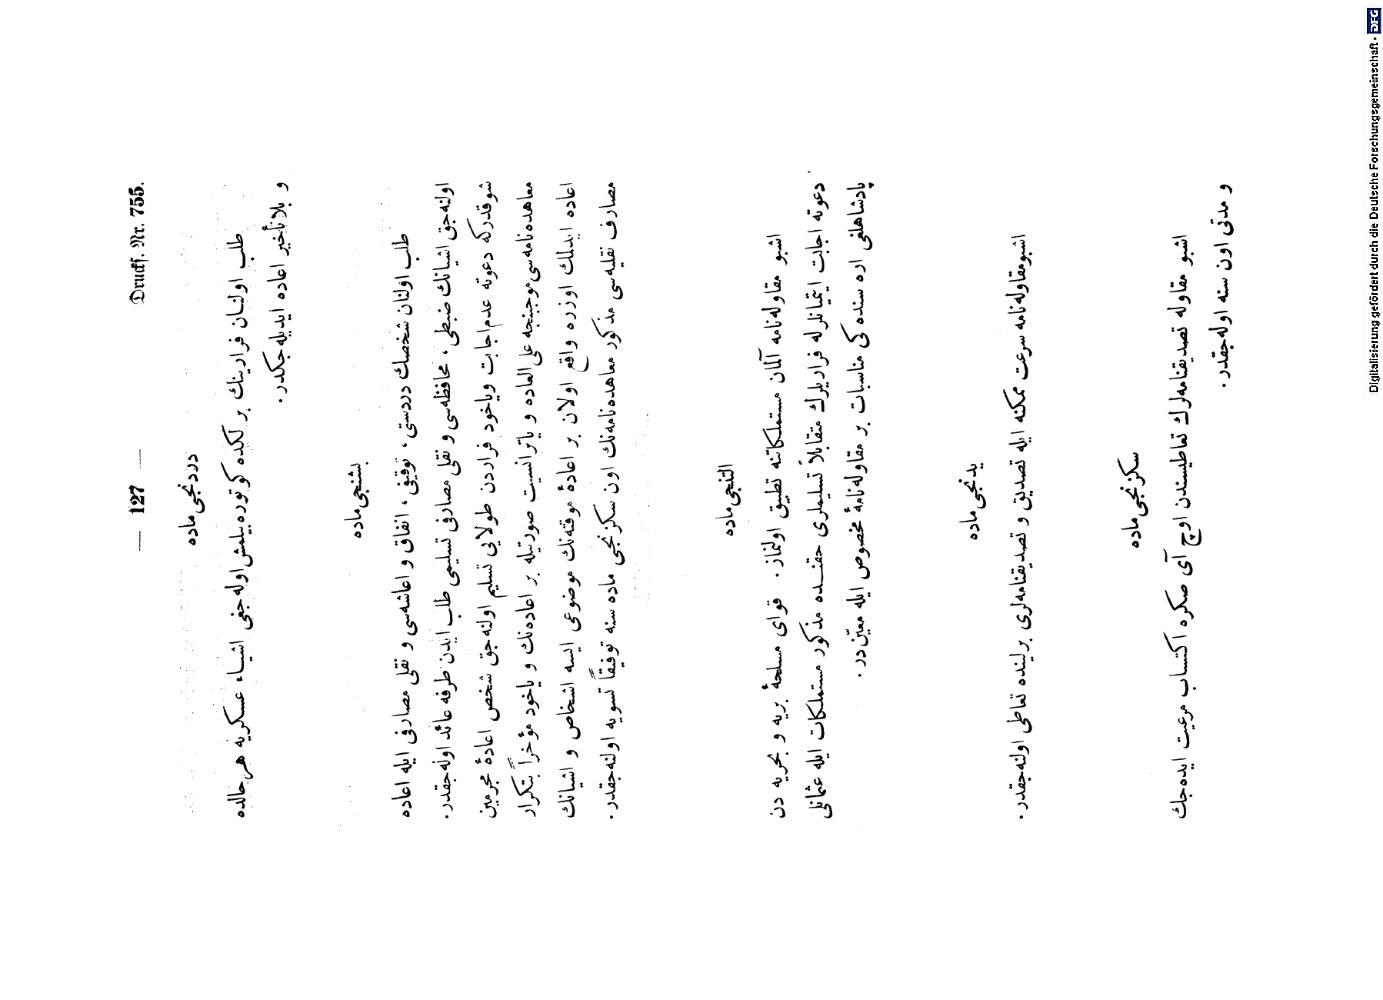 — 127 —
Drucks. Nr. 755.
دردنجی ماده
طلب اولنان فرارینك بر لكده كوتوره بیلمش اوله جغی اشیاء عسكریه هر حالده
و بلا تأخیر اعاده ایدیله جكدر .
بشنجی ماده
طلب اولنان شخصك دردستی ، توقیفی ، انفاق و اعاشه سی و نقلی مصارفی ایله اعاده
اولنه جق اشیانك ضبطی ، محافظه سی و نقلی مصارفی تسلیمی طلب ایدن طرفه عائد اوله جقدر .
شو قدركه دعوته عدم اجابت ویاخود فراردن طولایی تسلیم اولنه جق شخص اعادۀ مجرمین
معاهده نامه سی موجبنجه علی العاده و یا ترانسیت صورتیله بر اعاده نك و یاخود مؤخراً بتكرار
اعاده ایدلمك اوزره واقع اولان بر اعادۀ موقته نك موضوعی ایسه اشخاص و اشیانك
مصارف نقلیه سی مذكور معاهده نامه نك اون سكزنجی ماده سنه توفیقاً تسویه اولنه جقدر .
التنجی ماده
اشبو مقاوله نامه آلمان مستملكاتنه تطبیق اولنماز . قوای مسلحۀ بریه و بحریه دن
دعوته اجابت ایتمیانلرله فراریلرك متقابلاً تسلیملری حقنده مذكور مستملكات ایله عثمانلی
پادشاهلغی اره سنده كی مناسبات بر مقاوله نامۀ مخصوص ایله معین در .
یدنجی ماده
اشبو مقاوله نامه سرعت ممكنه ایله تصدیق و تصدیقنامه لری برلنده تعاطی اولنه جقدر .
سكزنجی ماده
اشبو مقاوله تصدیقنامه لرك تعاطیسندن اوچ آی صكره اكتساب مرعیت ایده جك
و مدتی اون سنه اوله جقدر .
Digitalisierung gefördert durch die Deutsche Forschungsgemeinschaft - DFG